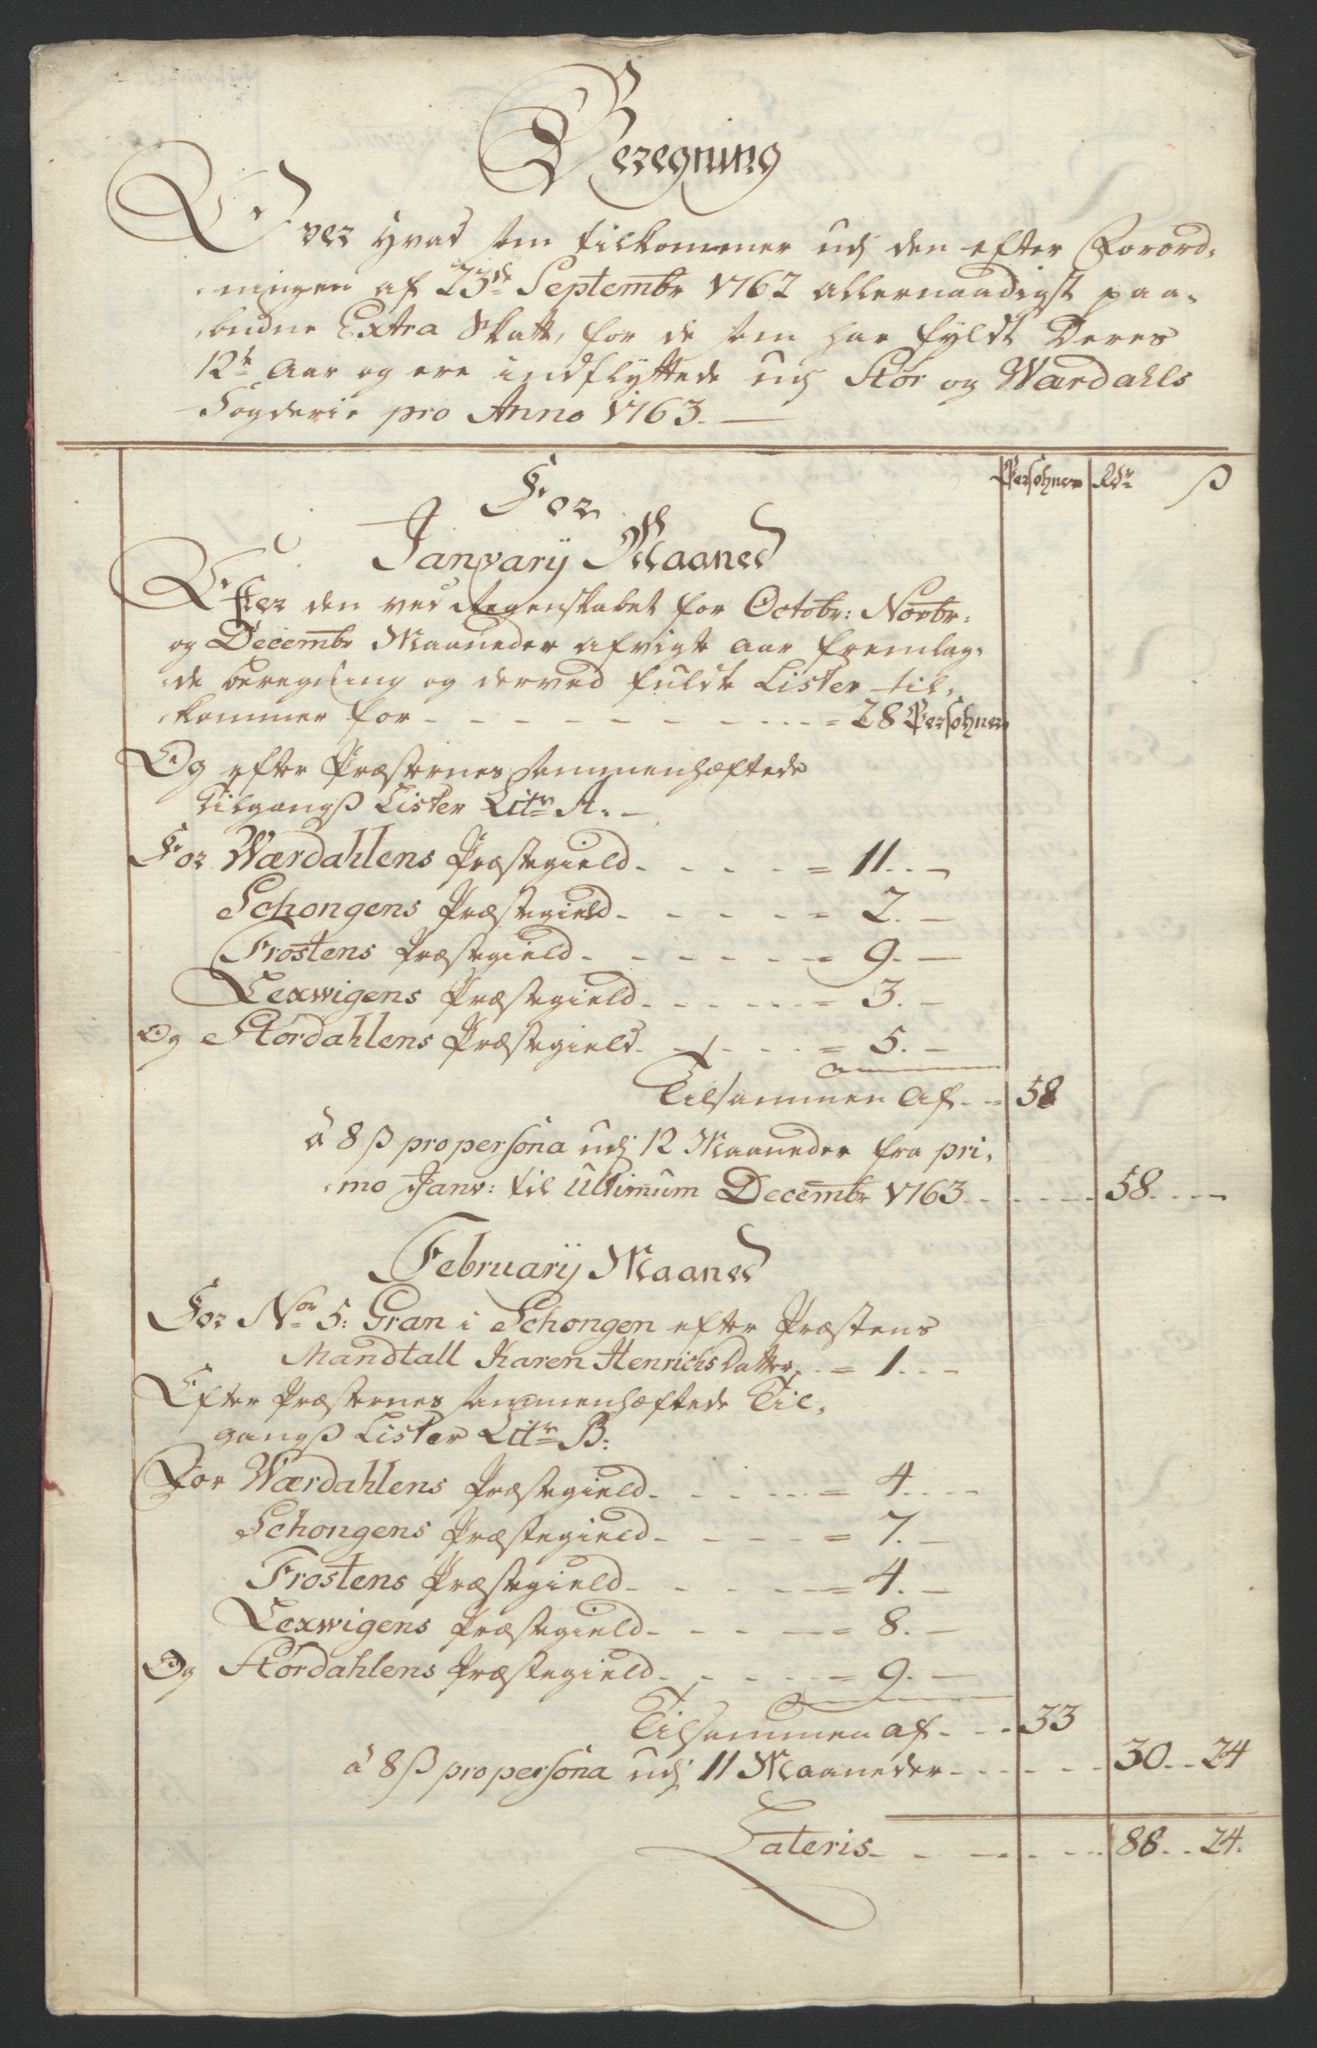 Beregning
Over Hvad som tilkommer udj den efter Forord,
ningen af 23de Septembr 1762 allernaadigst paa,
budne Extra Skatt, for de som har fyldt Deres
12te Aar og ere indflyttede udj Stør og Wærdahls
Fogderie pro Anno 1763.
Persohner Rdr ß
For
Janvarij Maaned
Efter den ved Regenskabet for Octobr: Novbr:
og Decembr Maaneder afvigte aar fremlag,
de beregning og derved fulde Lister til,
kommer for - - - - 28 Persohner
Og efter Præsternes sammenhæftede
Tilgangß Lister Litr A. -
For Wærdahlens Præstegield - - - - = 11. -
Schongens Præstegield - - - - = 2. -
Frostens Præstegield - - - - = 9. -
Lexwigens Præstegield - - - - = 3. -
Og Stördahlens Præstegield - - - - = 5. -
Tilsammen af - - 58
à 8 ß pro persona udj 12 Maaneder fra pri,
mo Janv: til Ultimum Decembr 1763 - - - 58. - -
Februarij Maaned
For Nor 5: Gran i Schongen efter Præstens
Mandtall Karen Henrichs Datter. - = 1. -
Efter Præsternes sammenhæftede Til,
gangß Lister Litr B:
For Wærdahlens Præstegield - - - - = 4. -
Schongens Præstegield - - - - = 7. -
Frostens Præstegield - - - - = 4. -
Lexwigens Præstegield - - - - = 8. -
Og Stördahlens Præstegield - - - - = 9. -
Tilsammen af - - - 33
à 8 ß pro persona udj 11 Maaneder - - - - 30 - 24
Lateris - - - - 88 - 24.